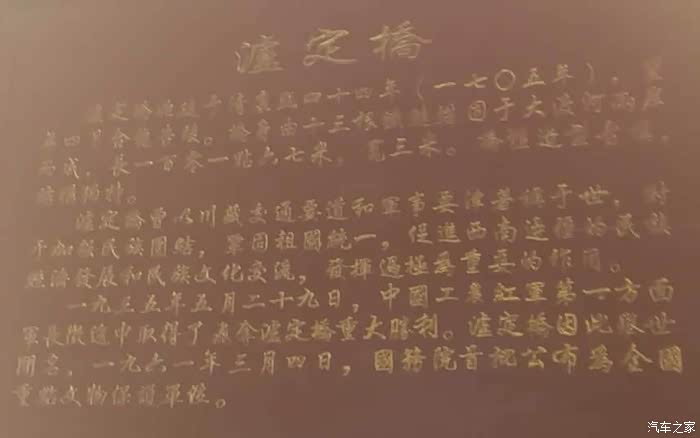 瀘定橋
瀘定橋始建于清康熙四十四年（一七〇五年），
年四月合龍告竣。橋身由十三根鐵鏈錨固于大渡河兩岸
而成，長一百零一點六七米，寬三米。橋
瀘定橋曾以川藏交通要道和軍事要津著稱于世，對
于加强民族團結，鞏固祖國統一，促進西南邊疆的民族
經濟發展和民族文化交流，發揮過極爲重要的作用。
一九三五年五月二十九日，中國工農紅軍第一方面
軍長徵途中取得了飛奪瀘定橋重大勝利。瀘定橋因此舉世
聞名，一九六一年三月四日，國務院首批公布爲全國
重點文物保護單位。
汽车之家